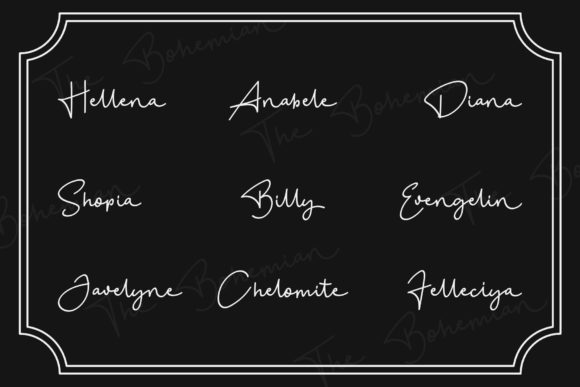 The Bohemian
Hellena Anabele Diana
The Bohemian
Shopia Billy Evengelin
The Bohemian
The Bohemian
Javelyne Chelomite Felleciya
The Bohemian
The Bohemian